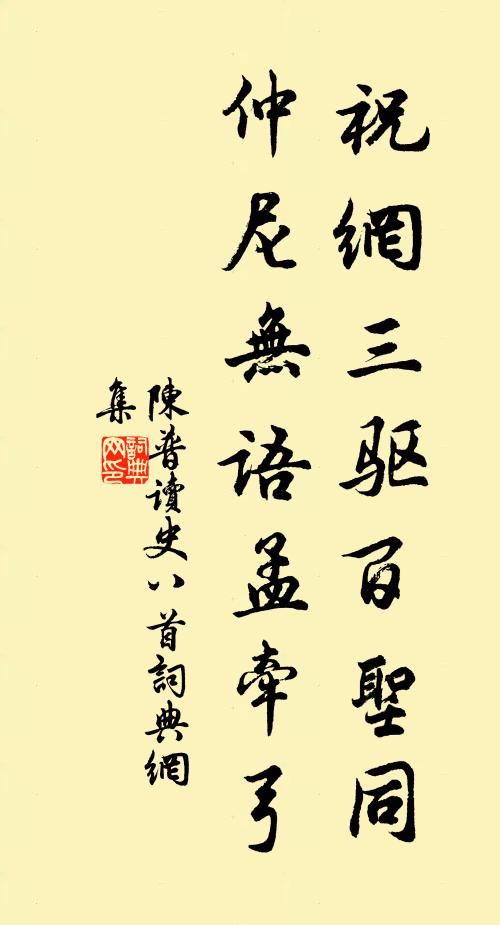 祝網三驱百聖同
仲尼無語孟牽弓
陳普讀史八首詞典網
集
詞典網印